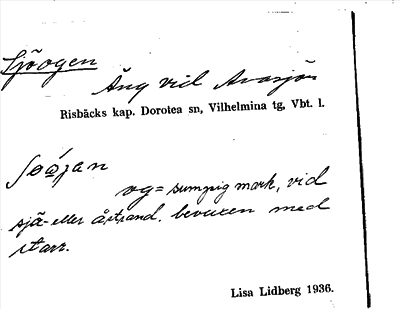 Sjöogen
Äng vid Avasjön
Risbäcks kap. Dorotea sn, Vilhelmina tg, Vbt. l.
og = sumpig mark, vid
sjö- eller åstrand. bevuxen med
starr.
Lisa Lidberg 1936.